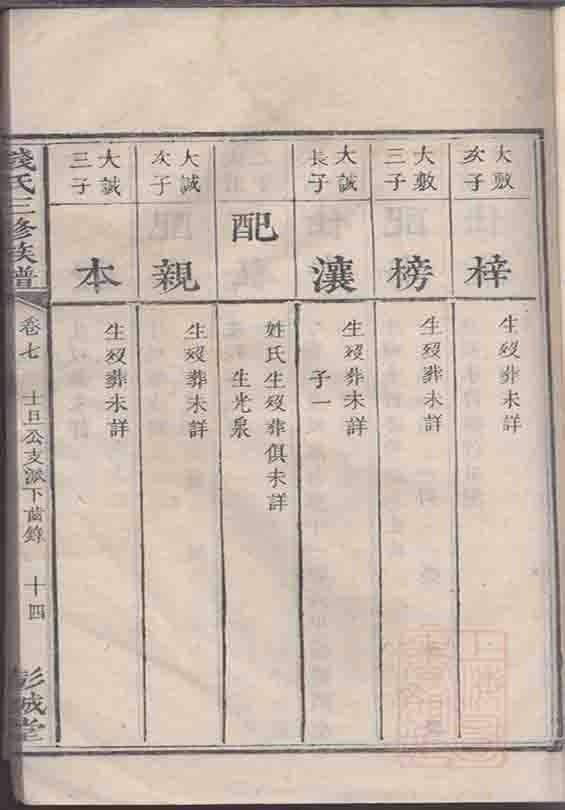 大敷
次子
梓
生歿葬未詳
大敷
三子
榜
生歿葬未詳
大誠
長子
瀼
生歿葬未詳
子一
配
姓氏生歿葬俱未詳
生光泉
大誠
次子
親
生歿葬未詳
大誠
三子
本
生歿葬未詳
錢氏三修族譜
卷七
士旦公支派下齒錄
十四
彭城堂